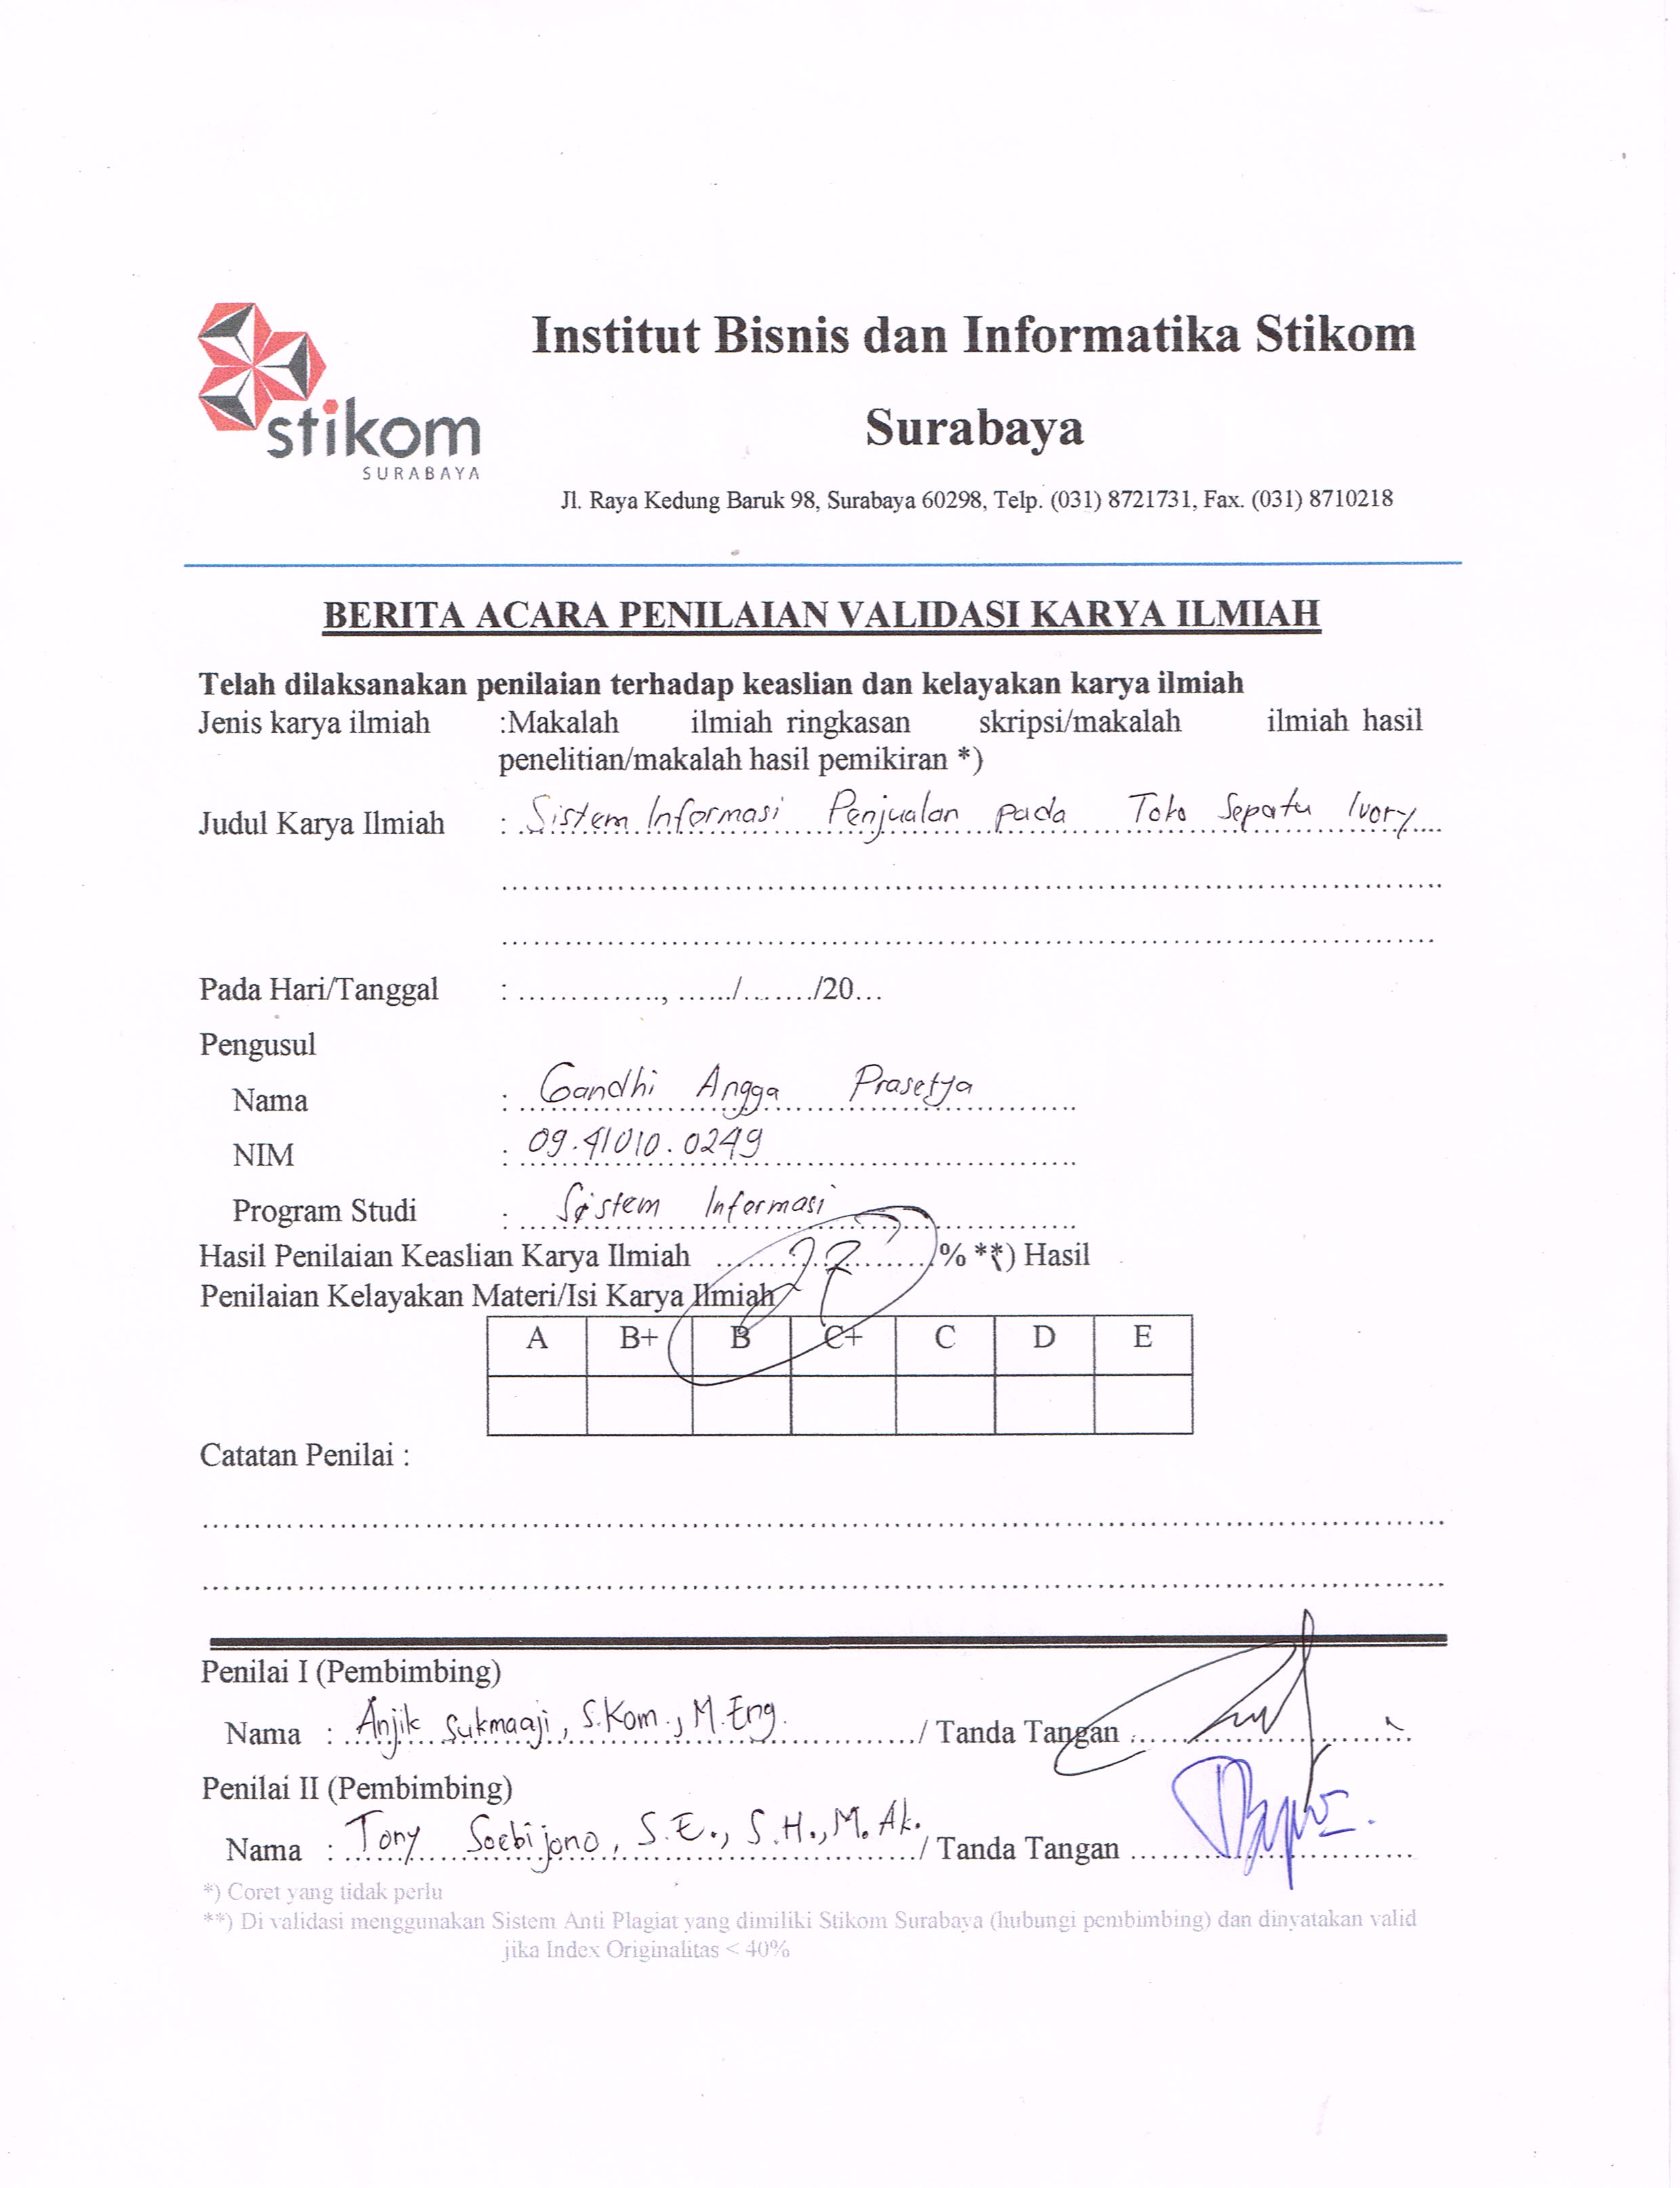 stikom
SURABAYA
Institut Bisnis dan Informatika Stikom
Surabaya
Jl. Raya Kedung Baruk 98, Surabaya 60298, Telp. (031) 8721731, Fax. (031) 8710218
BERITA ACARA PENILAIAN VALIDASI KARYA ILMIAH
Telah dilaksanakan penilaian terhadap keaslian dan kelayakan karya ilmiah
Jenis karya ilmiah :Makalah ilmiah ringkasan skripsi/makalah ilmiah hasil
penelitian/makalah hasil pemikiran *)
Judul Karya Ilmiah : Sistem Informasi Penjualan pada Toko Sepatu Ivory
Pada Hari/Tanggal : ............., ....../......../20...
Pengusul
Nama : Gandhi Angga Prasetya
NIM : 09.41010.0249
Program Studi : Sistem Informasi
Hasil Penilaian Keaslian Karya Ilmiah 27 % **) Hasil
Penilaian Kelayakan Materi/Isi Karya Ilmiah
A B+ B C+ C D E
Catatan Penilai :
Penilai I (Pembimbing)
Nama : Anjik Sukmaaji, S.Kom., M.Eng. / Tanda Tangan :
Penilai II (Pembimbing)
Nama : Tony Soebijono, S.E., S.H., M.Ak. / Tanda Tangan
*) Coret yang tidak perlu
**) Di validasi menggunakan Sistem Anti Plagiat yang dimiliki Stikom Surabaya (hubungi pembimbing) dan dinyatakan valid
jika Index Originalitas < 40%